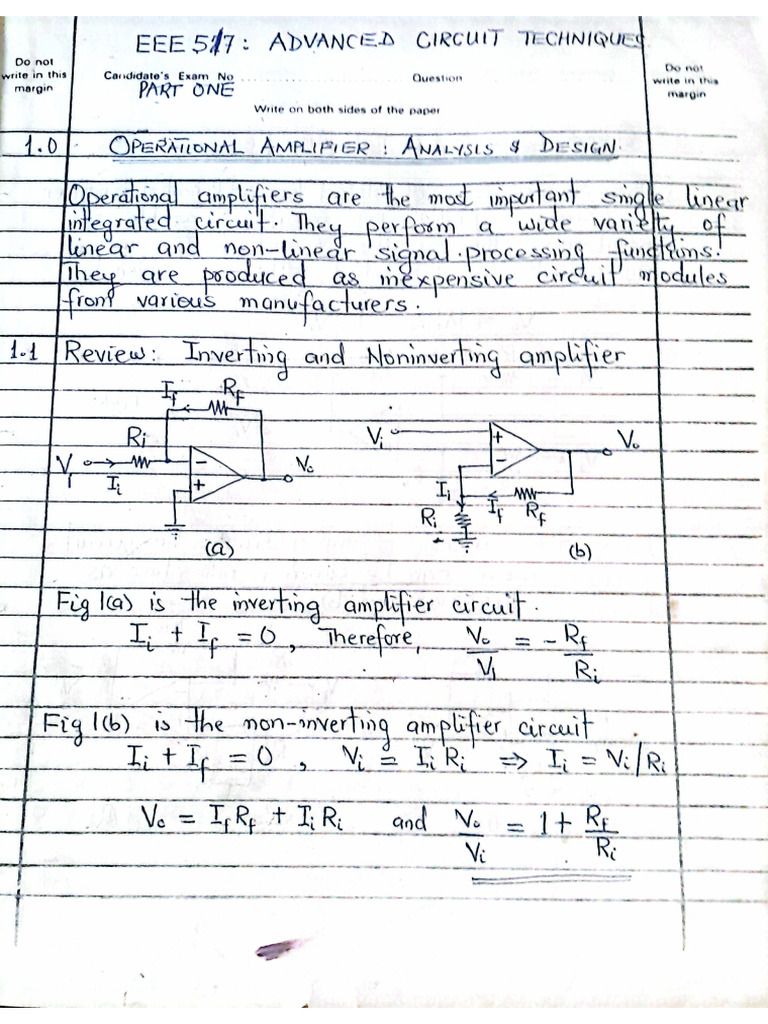 EEE 517: ADVANCED CIRCUIT TECHNIQUES
Do not
write in this
margin
Candidate's Exam No
Question
Do not
write in this
margin
PART ONE
Write on both sides of the paper
1.0 OPERATIONAL AMPLIFIER: ANALYSIS & DESIGN.
Operational amplifiers are the most important single linear
integrated circuit. They perform a wide variety of
linear and non-linear signal-processing functions.
They are produced as inexpensive circuit modules
from various manufacturers.
1.1 Review: Inverting and Noninverting amplifier
If Rf
Ri
Vi
Ii
−
+
Vo
(a)
Vi
+
−
Vo
Ii
If
Rf
Ri
(b)
Fig 1(a) is the inverting amplifier circuit.
Ii + If = 0, Therefore, Vo/V1 = -Rf/Ri
Fig 1(b) is the non-inverting amplifier circuit
Ii + If = 0, Vi = Ii Ri ⇒ Ii = Vi/Ri
Vo = If Rf + Ii Ri and Vo/Vi = 1 + Rf/Ri